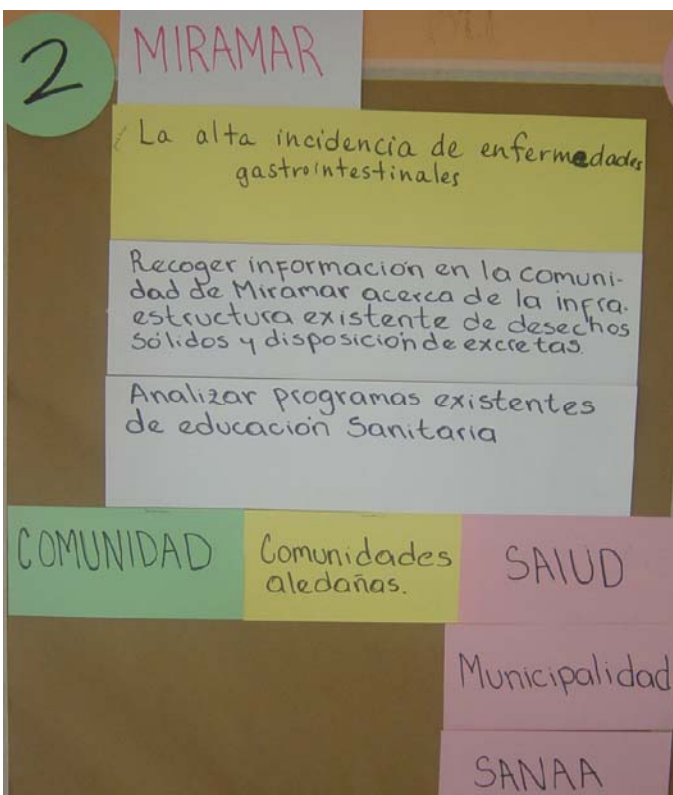 2
MIRAMAR
La alta incidencia de enfermedades
gastrointestinales
Recoger información en la comuni-
dad de Miramar acerca de la infra.
estructura existente de desechos
sólidos y disposición de excretas.
Analizar programas existentes
de educación Sanitaria
COMUNIDAD
Comunidades
aledañas.
SALUD
Municipalidad
SANAA